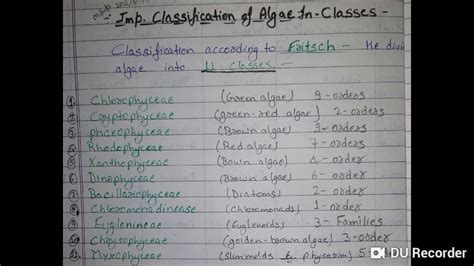 Imp. Classification of Algae In-Classes -
Classification according to Fritsch - He divi
algae into 11-classes. -
① Chlorophyceae (Green algae) 9-orders
② Cryptophyceae (green-red algae) 2-orders
③ phaeophyceae (Brown algae) 9-orders
④ Rhodophyceae (Red algae) 7-orders
⑤ Xanthophyceae (Bown algae) 4-order
⑥ Dinophyceae (Brown algae) 6-order
⑦ Bacillariophyceae (Diatoms) 2-order
⑧ Chloromonadinease (Chloromonads) 1-order
⑨ Euglenineae (Euglenoids) 3-Families
⑩ Chrysophyceae (golden-brown algae) 3-order
⑪ Myxophyceae (Slim melds & physarum) 5
DU Recorder